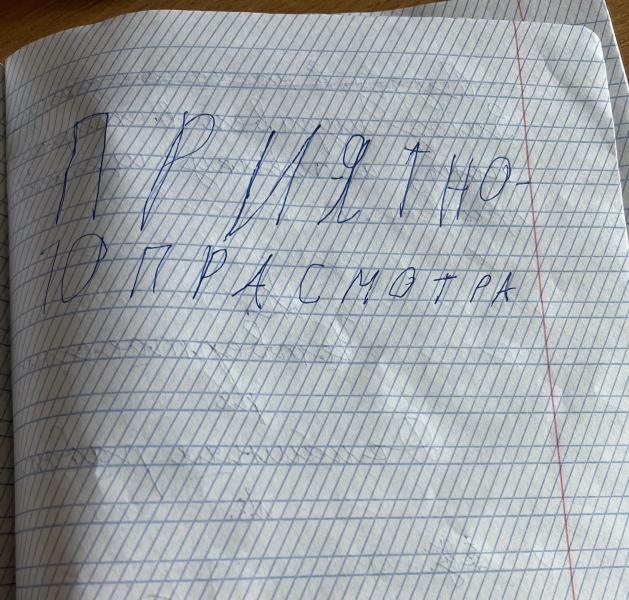 ПРИЯТНО-
Ю ПРАСМОТРА